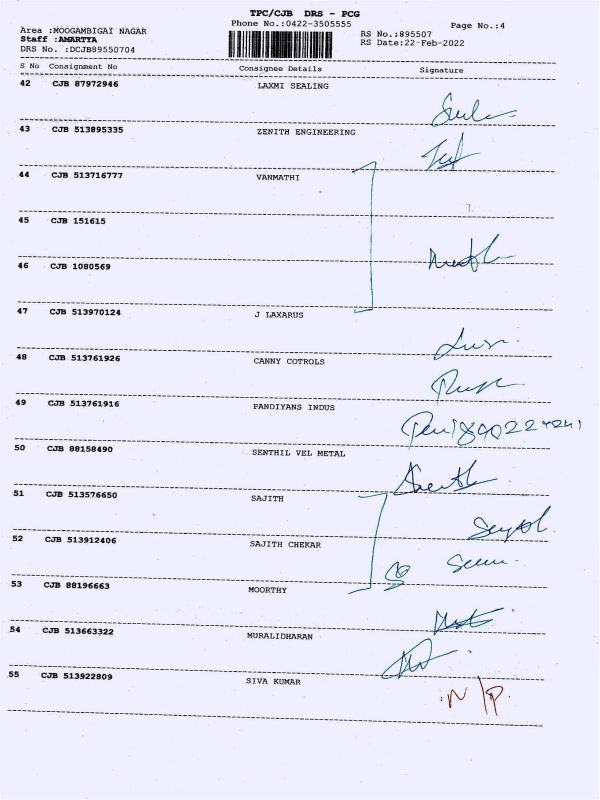 TPC/CJB DRS - PCG
Phone No.:0422-3505555
Page No.:4
Area :MOOGAMBIGAI NAGAR
Staff :AMARTYA
DRS No. :DCJB89550704
RS No.:895507
RS Date:22-Feb-2022
S No Consignment No Consignee Details Signature
42 CJB 87972946 LAXMI SEALING
43 CJB 513895335 ZENITH ENGINEERING
44 CJB 513716777 VANMATHI
45 CJB 151615
46 CJB 1080569
47 CJB 513970124 J LAXARUS
48 CJB 513761926 CANNY COTROLS
49 CJB 513761916 PANDIYANS INDUS
50 CJB 88158490 SENTHIL VEL METAL
51 CJB 513576650 SAJITH
52 CJB 513912406 SAJITH CHEKAR
53 CJB 88196663 MOORTHY
54 CJB 513663322 MURALIDHARAN
55 CJB 513922809 SIVA KUMAR
N/P.